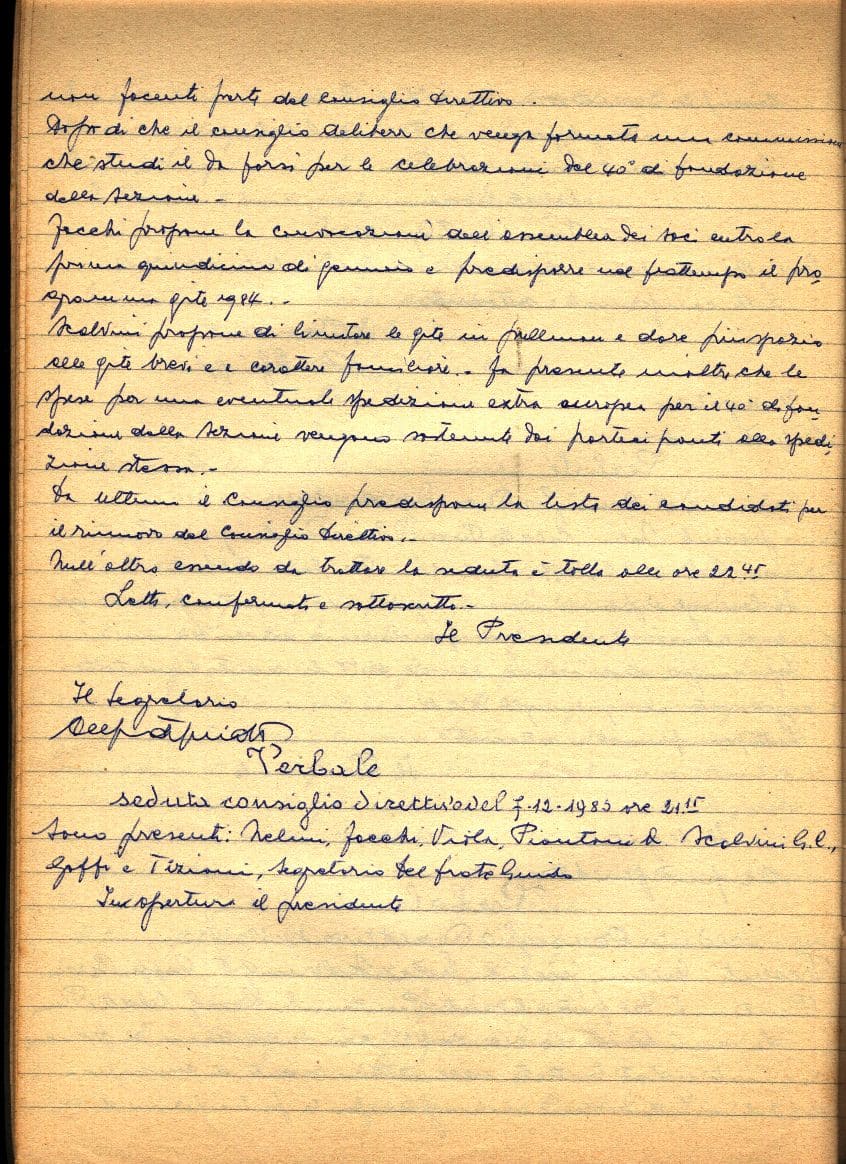 non facenti parte del Consiglio Direttivo..
Dopo di che il consiglio delibera che venga formata una commissione
che studi il da farsi per le celebrazioni del 40° di fondazione
della Sezione -
Jacchi propone la convocazione dell'assemblea dei soci entro la
prima quindicina di gennaio e predisporre nel frattempo il pro-
gramma gite 1984. -
Scalvini propone di limitare le gite in pullman e dare più spazio
alle gite brevi e a carattere familiare. - fa presente inoltre che le
spese per una eventuale spedizione extra europea per il 40° di fon-
dazione della Sezione vengano sostenute dai partecipanti alla spedi-
zione stessa. -
Da ultimo il Consiglio predispone la lista dei candidati per
il rinnovo del Consiglio Direttivo. -
Null'altro essendo da trattare la seduta è tolta alle ore 22 45
Letto, confermato e sottoscritto. -
Il Presidente
Il Segretario
Verbale
seduta consiglio direttivo del 7-12-1983 ore 21 15
Sono presenti: Melini, Jacchi, Viola, Piantoni R. Scalvini G.C.,
Goffi e Tizioni, Segretario Del frate Guido
In apertura il presidente